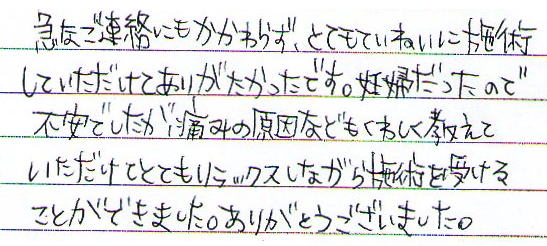 急なご連絡にもかかわらず、とてもていねいに施術
していただけてありがたかったです。妊婦だったので
不安でしたが、痛みの原因などもくわしく教えて
いただけてとてもリラックスしながら施術を受ける
ことができました。ありがとうございました。